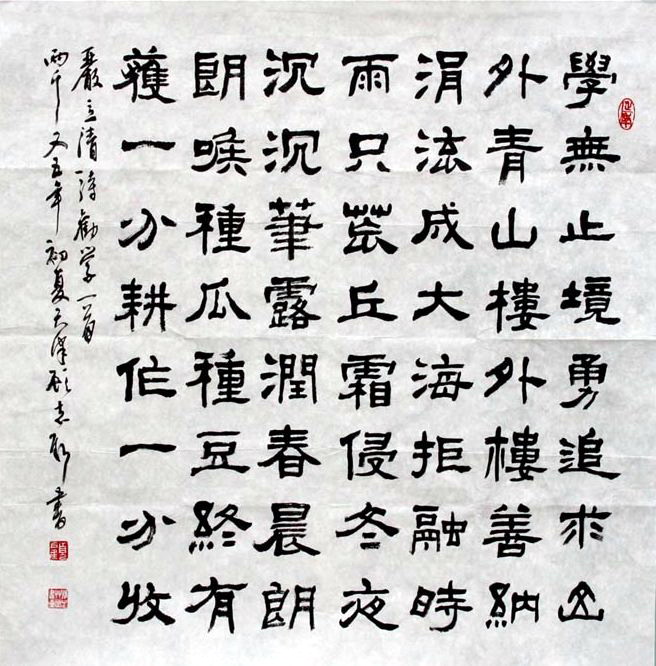 學無止境勇追求山
外青山樓外樓善納
涓流成大海拒融時
雨只荒丘霜侵冬夜
沉沉筆露潤春晨朗
朗喉種瓜種豆終有
獲一分耕作一分收
嚴立清詩勸學一首
兩千又五年初夏書